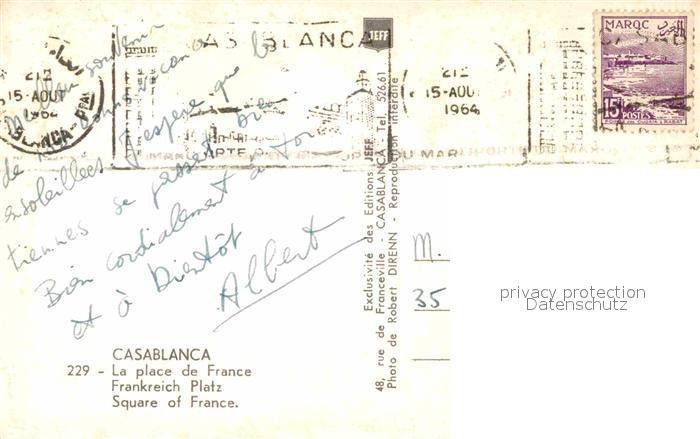 Meilleur souvenir
de
ensoleillées J'espère que les
tiennes se passent bien
Bien cordialement à toi
et à bientôt
Albert
CASABLANCA
229 - La place de France
Frankreich Platz
Square of France.
JEFF
Exclusivité des Editions JEFF
48, rue de Franceville - CASABLANCA Tel. 526.61
Photo de Robert DIRENN - Reproduction interdite
CASABLANCA
212
15-AOUT
1964
212
15-AOUT
1964
MAROC
15F
POSTES
M.
35
privacy protection
Datenschutz